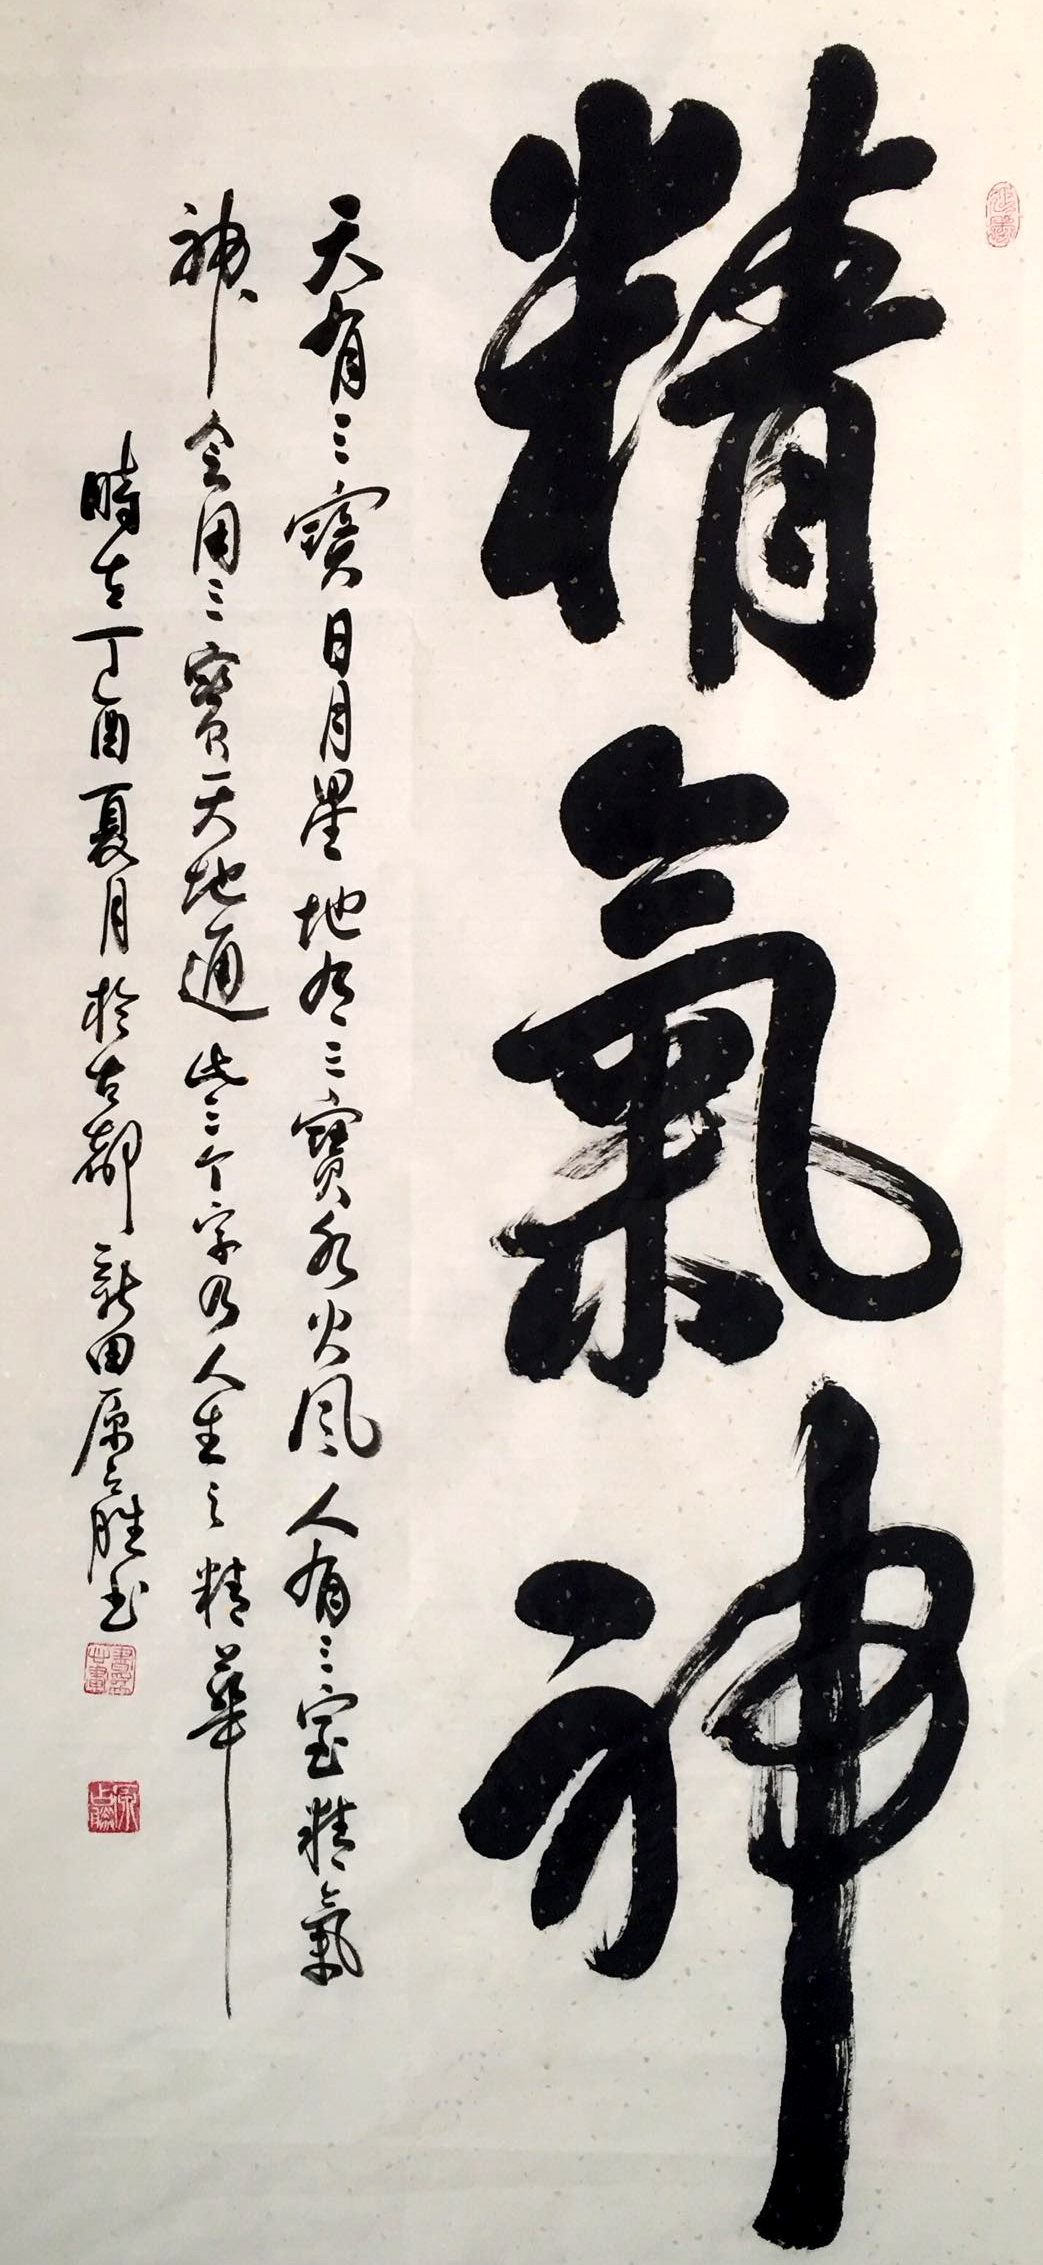 精氣神
天有三寳日月星地有三寳水火風人有三宝精氣
神会用三寳天地通此三个字乃人生之精華
時在丁酉夏月於古都新田原占胜书
延年
原占勝